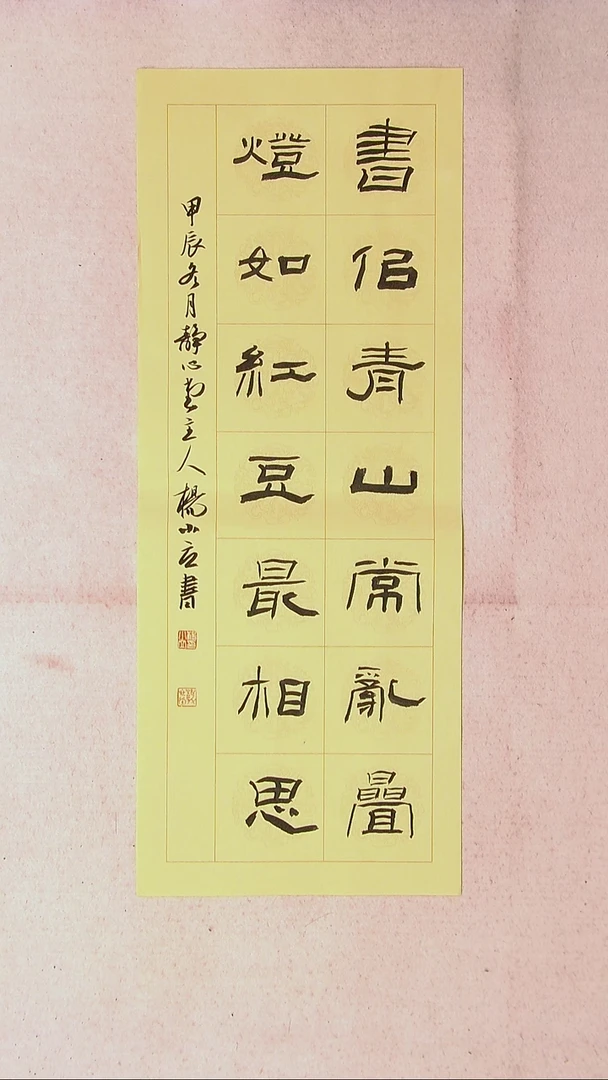 書佀青山常亂疊
燈如紅豆最相思
甲辰冬月靜心堂主人楊小書